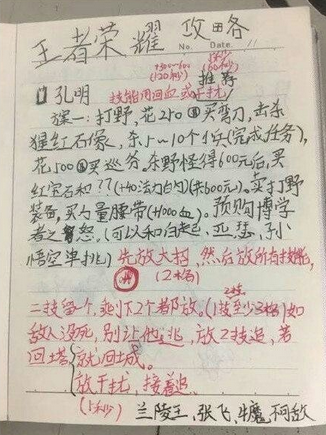 王者荣耀 攻略
No. Date
+500~600 1秒
(120秒) (60秒)
推荐
①孔明 技能用回血或干扰
, 打野, 花250买弯刀, 击杀
猩红石像, 杀5~10个小兵(完成任务),
花500买巡爷。杀野怪得600元后, 买
红宝石和??(+40法力)(共600元)。卖打野
装备, 买力量腰带(+1000血)。预购博学
者之怒,(可以和白起, 亚瑟, 孙
悟空单挑) 先放大招, 然后放所有技能,
(2格)
2技
二技留一个, 剩下2个都放。(1技至少3格)如
敌人没死, 别让他逃, 放2技追, 若
回塔 就回城。
放干扰, 接着追
(1秒) 兰陵王, 张飞, 牛魔, 不可敌